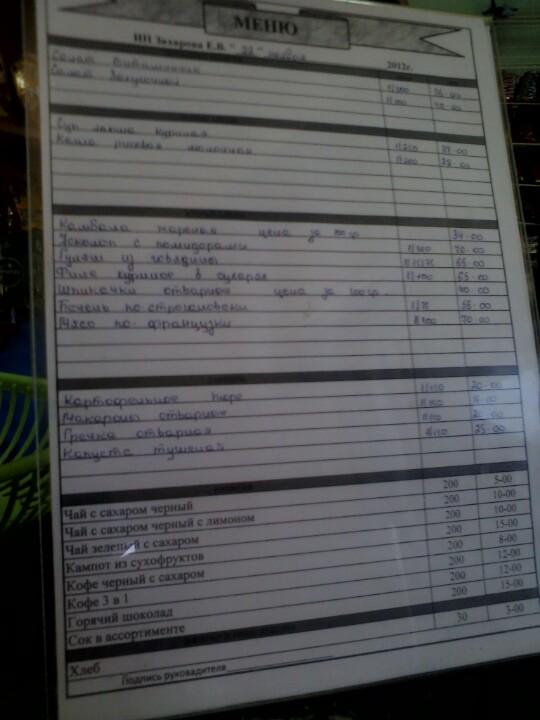 МЕНЮ
ИП Захарова Е.В. " 22 " июня 2012г.
Салат Витаминный 1/100 35-00
Салат 1/100 40-00
Суп лапша куриная 1/250 27-00
Каша рисовая молочная 1/200 28-00
Камбала жареная цена за 100гр 34-00
Эсколоп с помидорами 1/100 70-00
Гуляш из говядины 65-00
Филе куриное в сухарях 1/100 65-00
Шпикачки отварные цена за 100гр. 40-00
Печень по-строгановски 1/75 55-00
Мясо по-французки 1/100 70-00
Картофельное пюре 1/150 20-00
Макароны отварные
Гречка отварная
Капуста тушеная 1/150 25-00
Чай с сахаром черный 200 5-00
Чай с сахаром черный с лимоном 200 10-00
Чай зеленый с сахаром 200 10-00
Кампот из сухофруктов 200 15-00
Кофе черный с сахаром 200 8-00
Кофе 3 в 1 200 12-00
Горячий шоколад 200 12-00
Сок в ассортименте 200 15-00
Хлеб 30 3-00
Подпись руковадителя